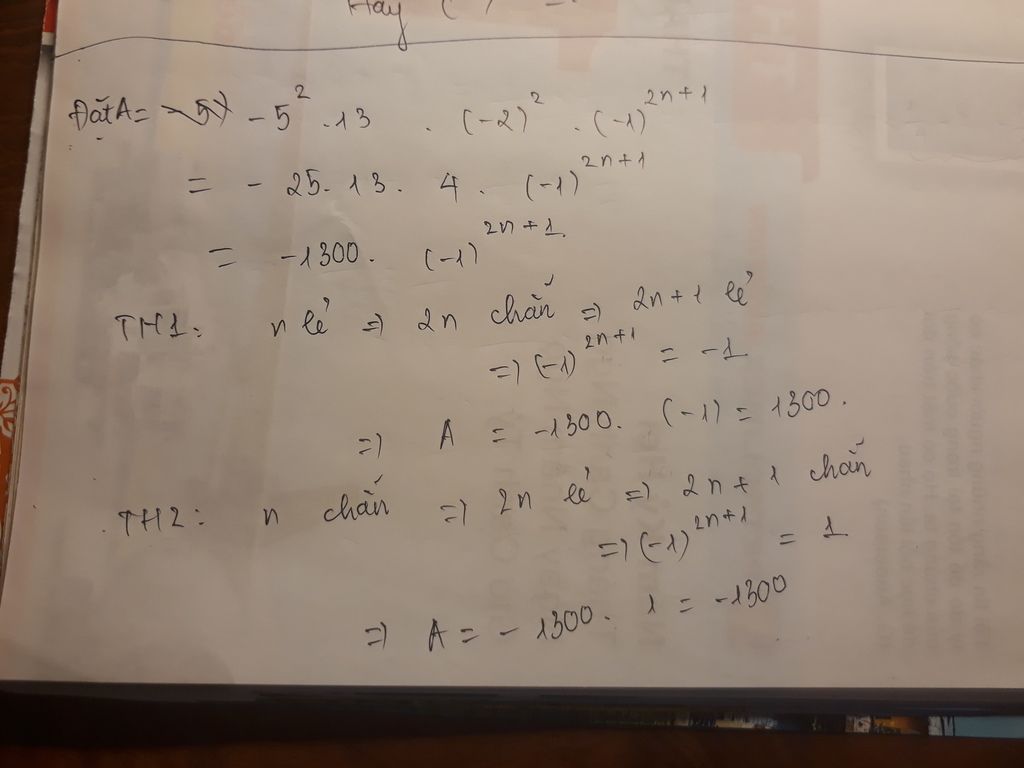 Hay ( )
Đặt A = -5) -5² .13 . (-2)² . (-1)²ⁿ⁺¹
= - 25. 13. 4. (-1)²ⁿ⁺¹
= -1300. (-1)²ⁿ⁺¹.
TH1: n lẻ => 2n chẵn => 2n+1 lẻ
=> (-1)²ⁿ⁺¹ = -1
=> A = -1300. (-1) = 1300.
TH2: n chẵn => 2n lẻ => 2n + 1 chẵn
=> (-1)²ⁿ⁺¹ = 1
=> A = - 1300. 1 = -1300